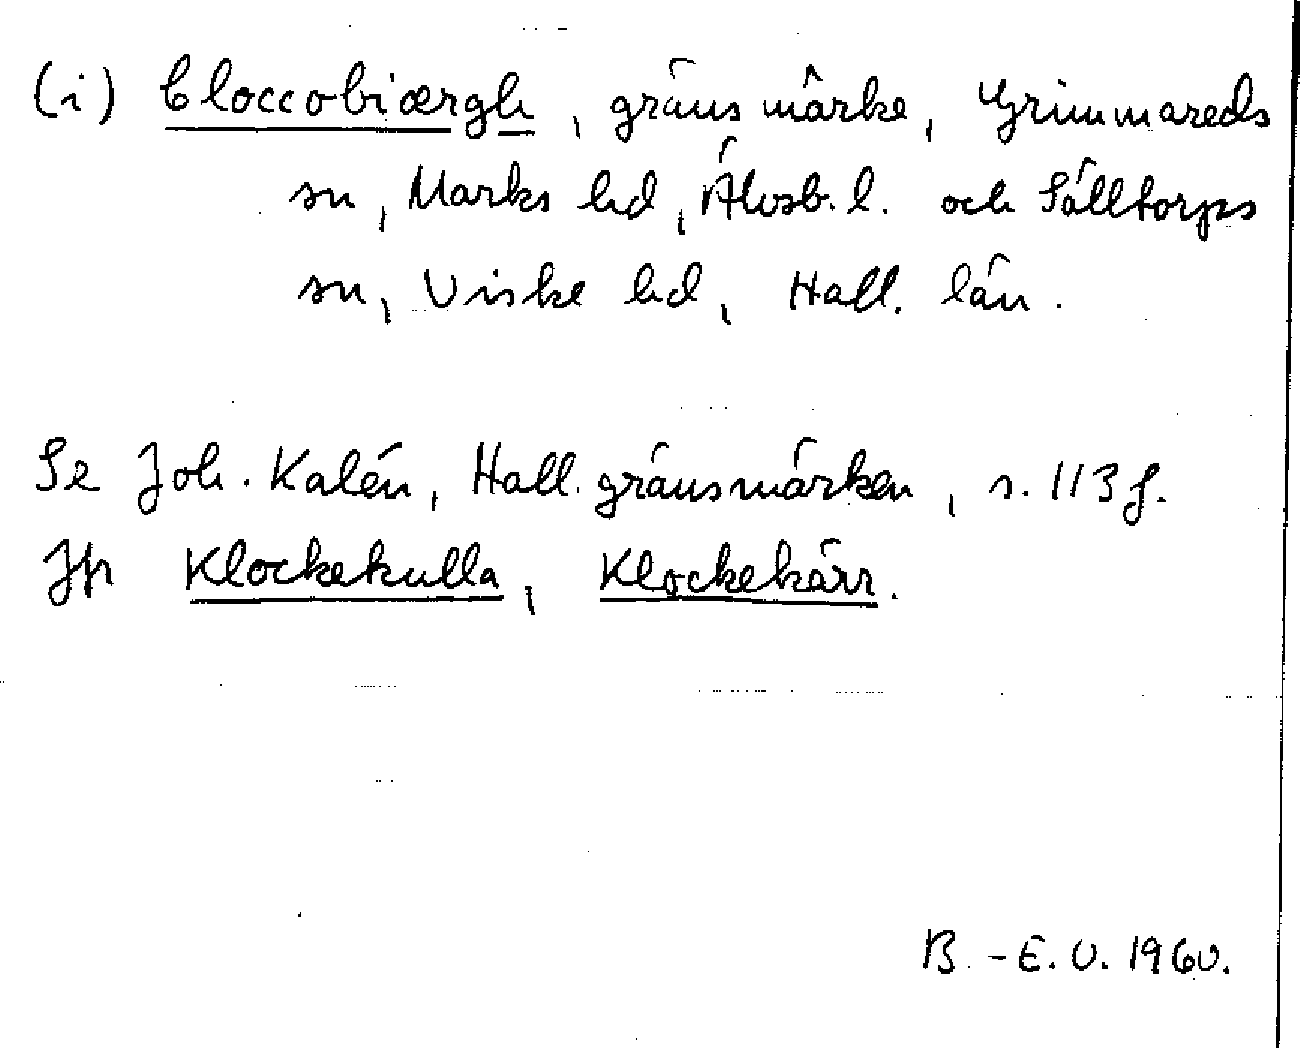 (i) cloccobiærgh, gränsmärke, Grimmareds
sn, Marks hd, Älvsb. l. och Sälltorps
sn, Viske hd, Hall. län.
Se Joh. Kalén, Hall. gränsmärken, s. 113 f.
Jfr Klockekulla, Klockekärr.
B.-E. O. 1960.